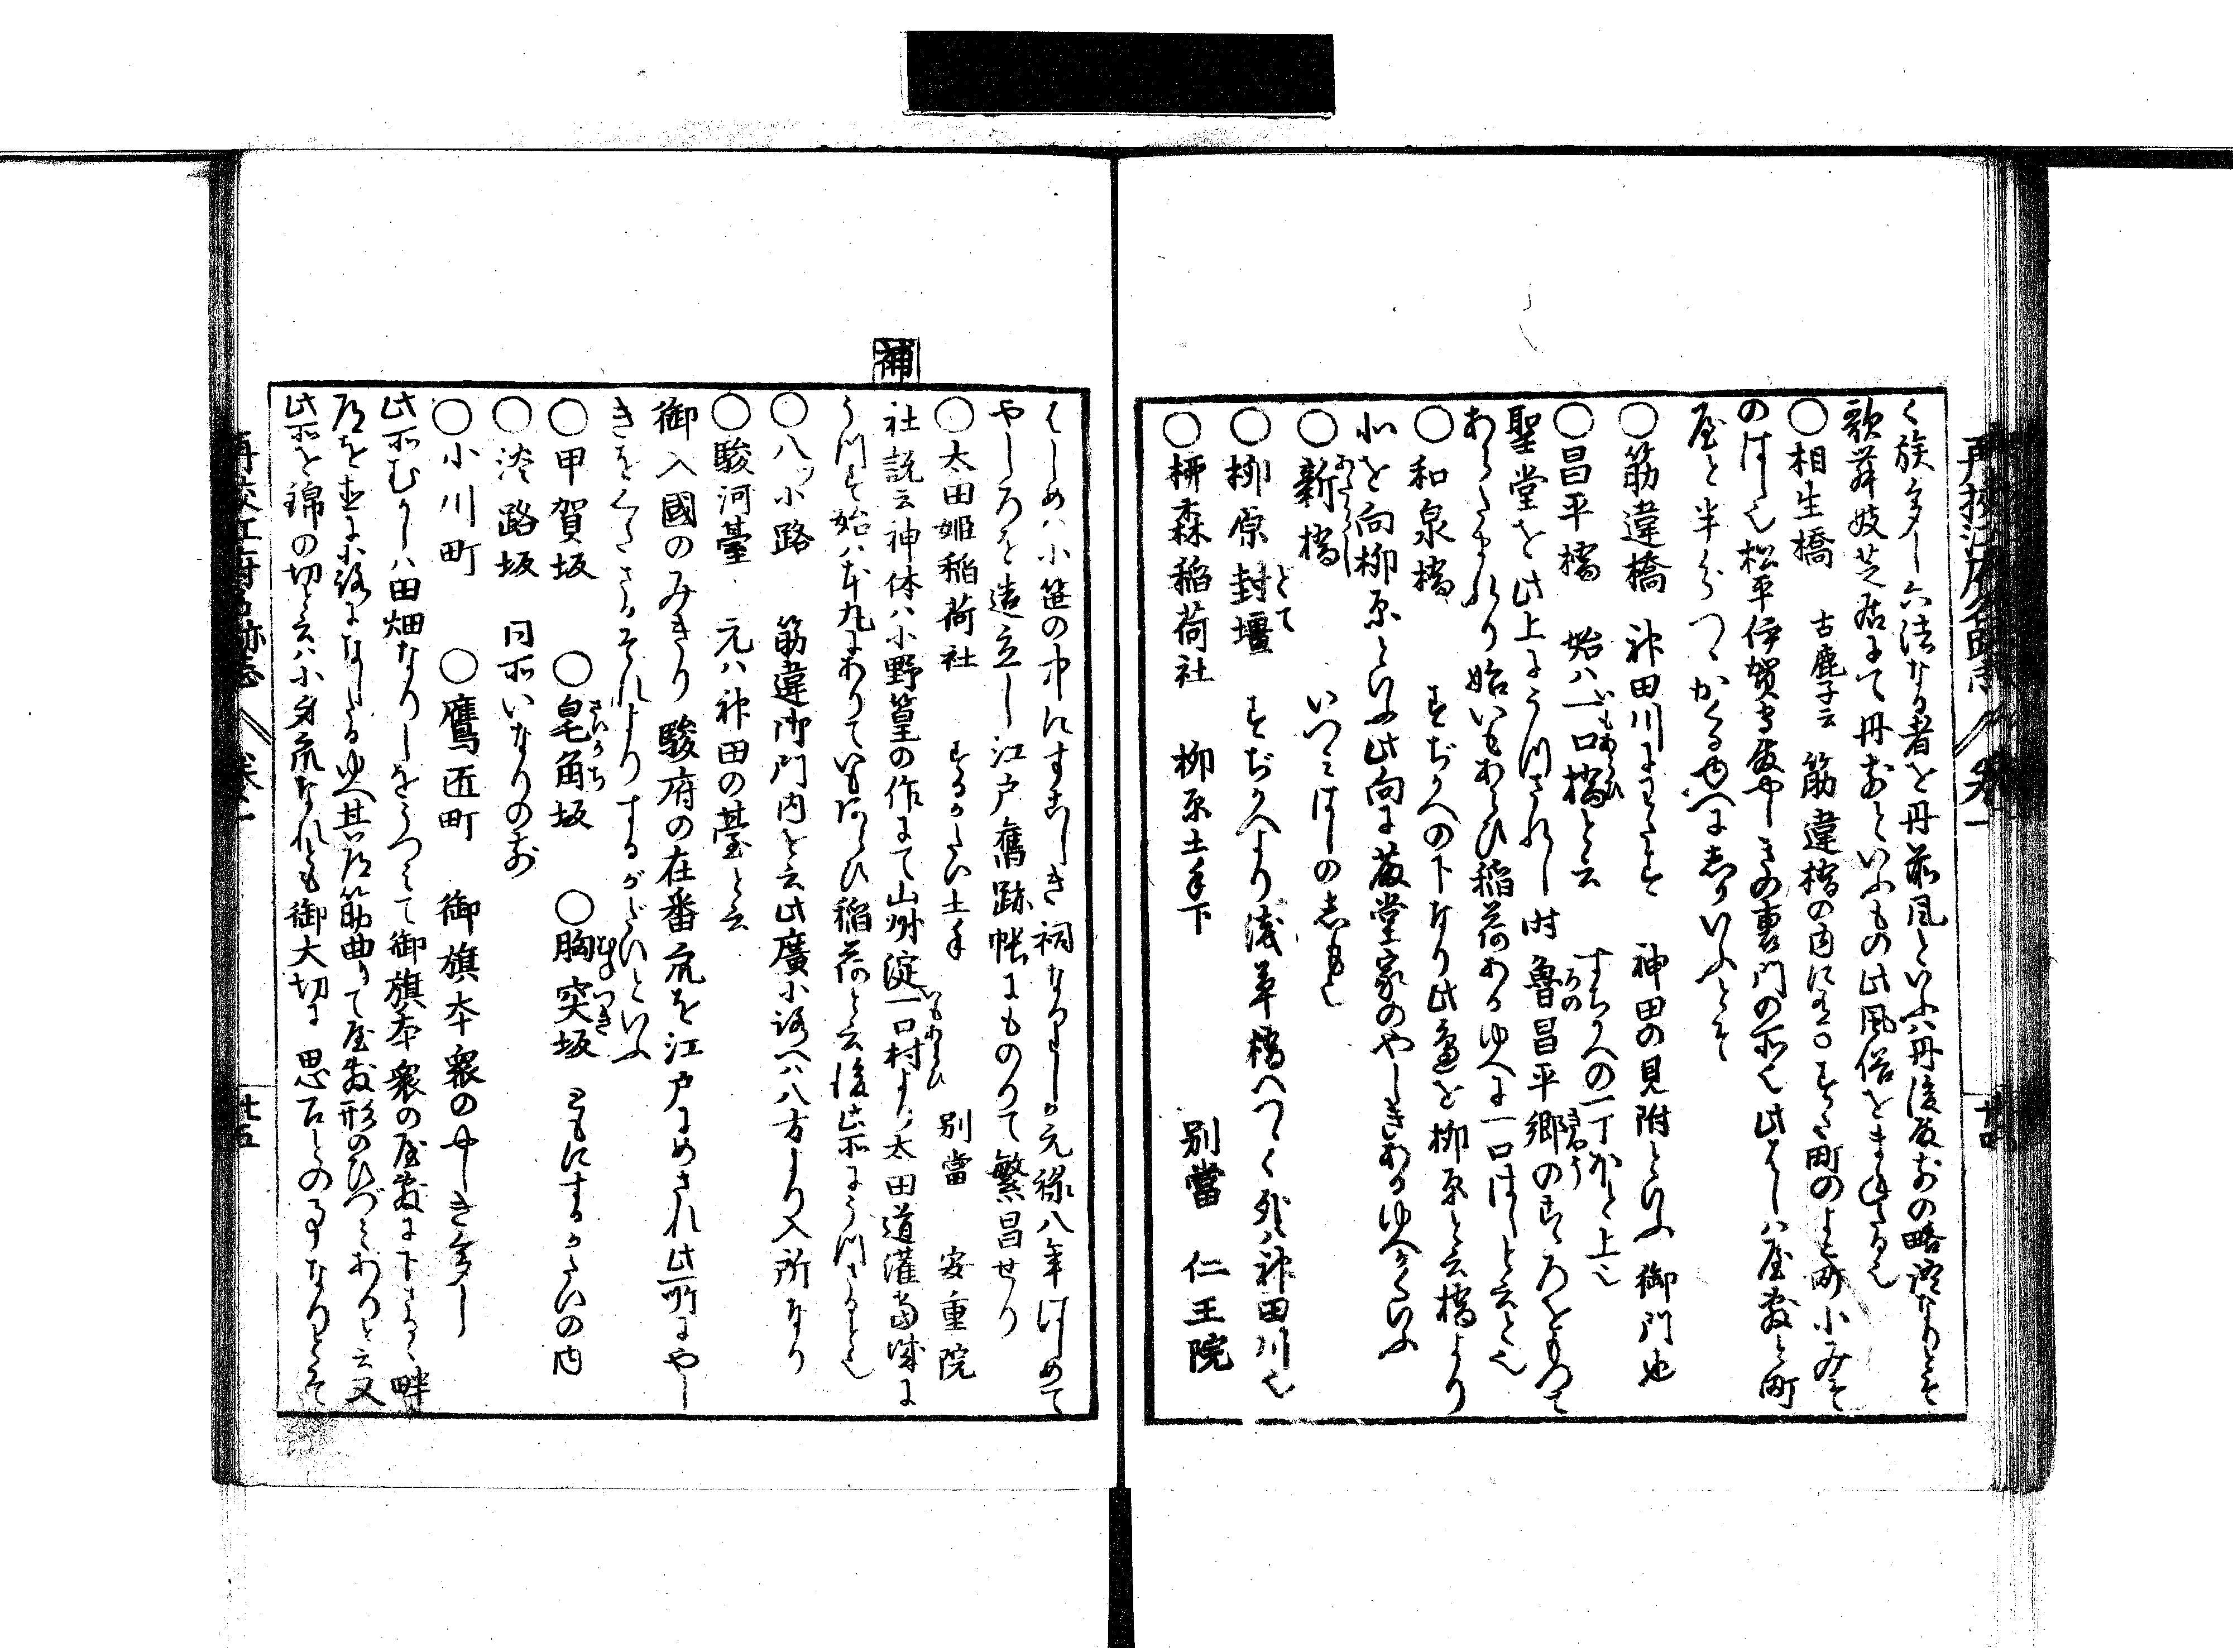 く族多し六法なる者を丹前風といふハ丹後殿前の略語なりとそ
歌舞妓芝居にて丹前といふもの此風俗をまねたる也
〇相生橋 古鹿子云 筋違橋の内に有〇すた町のよこ町小みそ
のはし也松平伊賀守殿やしきの裏門の所也此はしハ屋敷と町
屋と半分つゝかくるゆへにしかいふとそ
〇筋違橋 神田川にわたす 神田の見附といふ御門也
〇昌平橋 始ハ一口橋と云 すちかへの一丁ほと上也
いもあらひ
聖堂を此上にうつされし時魯昌平郷のところをもつて
ろの きやう
あらためられり始いもあらひ稲荷あるゆへに一口はしと云し也
〇和泉橋 すぢかへの下なり此邊を柳原と云橋より
北を向柳原といふ此向に藤堂家のやしきあるゆへかくいふ
〇新橋 いつミはしの志も也
あたらしはし
〇柳原封壃 すぢかへより浅草橋へつゝく外ハ神田川也
どて
〇柳森稲荷社 柳原土手下 別當 仁王院
はしめハ小笹の中にすこしき祠なりしか元禄八年はしめて
やしろを造立し江戸舊跡帳にものりて繁昌せり
〇太田姫稲荷社 するかたい土手 別當 安重院
補
社説云神体ハ小野篁の作にて山州淀一口村より太田道灌當城に
いもあらひ
うつす始ハ本丸にありていもあらひ稲荷と云後此所にうつさるゝと也
〇八ッ小路 筋違御門内を云此廣小路へハ八方より入所なり
〇駿河臺 元ハ神田の臺と云
御入國のみきり駿府の在番衆を江戸にめされ此所にやし
きをくたさるそれよりするがだいといふ
〇甲賀坂 〇皂角坂 〇胸突坂 ともにするかたいの内
さいかち むねつき
〇淡路坂 同所いなりの前
〇小川町 〇鷹匠町 御旗本衆のやしき多し
此所むかしハ田畑なりしをうつミて御旗本衆の屋敷に下さるゝ畔
道を直に小路になしたるゆへ其道筋曲りて屋敷形のひづミありと云又
此所を錦の切と云ハ小身衆なれとも御大切に思召との事なりとそ
再校江府名跡志 巻一 廿四
再校江府名跡志 巻一 廿五